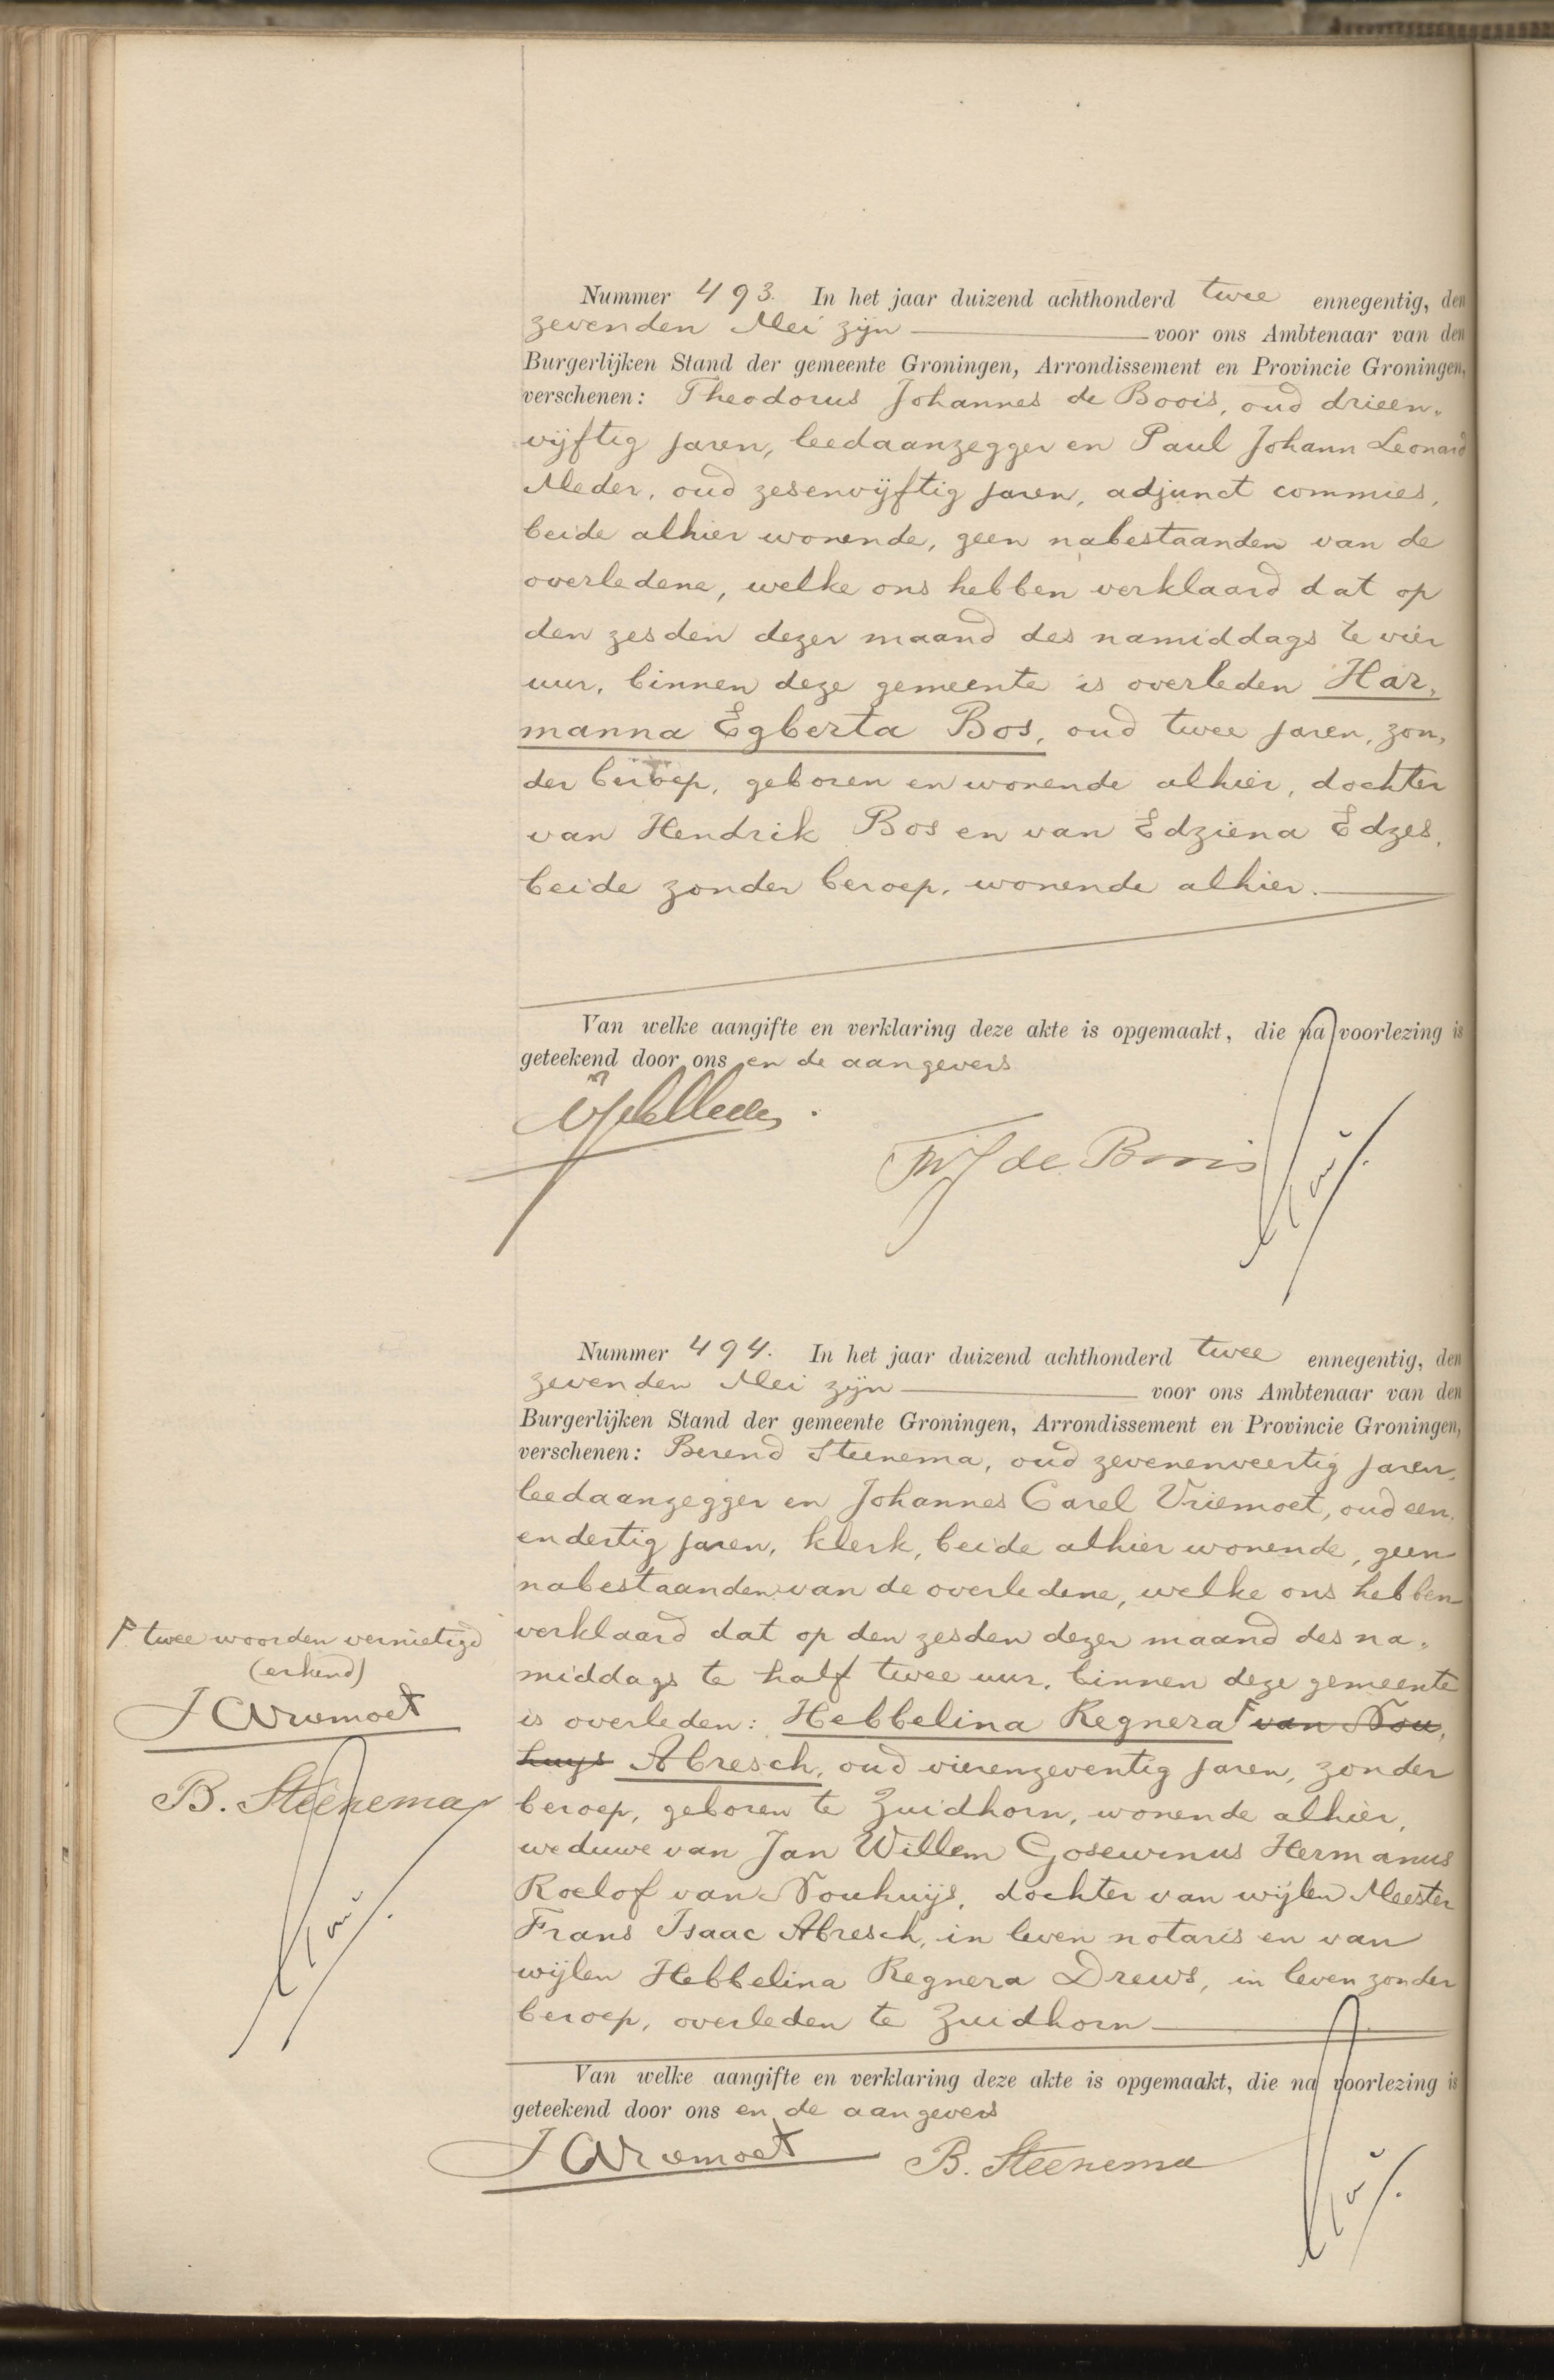 Nummer 493. In het jaar duizend achthonderd twee ennegentig, den
zevenden Mei zijn voor ons Ambtenaar van den
Burgerlijken Stand der gemeente Groningen, Arrondissement en Provincie Groningen,
verschenen: Theodorus Johannes de Boois, oud drieen,
vijftig jaren, leedaanzegger en Paul Johann Leonard
Meder, oud zesenvijftig jaren, adjunct commies,
beide alhier wonende, geen nabestaanden van de
overledene, welke ons hebben verklaard dat op
den zesden dezer maand des namiddags te vier
uur, binnen deze gemeente is overleden Har,
manna Egberta Bos, oud twee jaren, zon,
der beroep, geboren en wonende alhier, dochter
van Hendrik Bos en van Edziena Edzes,
beide zonder beroep, wonende alhier.
Van welke aangifte en verklaring deze akte is opgemaakt, die na voorlezing is
geteekend door ons en de aangevers
Th J de Boois
Nummer 494. In het jaar duizend achthonderd twee ennegentig, den
zevenden Mei zijn voor ons Ambtenaar van den
Burgerlijken Stand der gemeente Groningen, Arrondissement en Provincie Groningen,
verschenen: Berend Steenema, oud zevenenveertig jaren,
leedaanzegger en Johannes Carel Vriemoet, oud een,
endertig jaren, klerk, beide alhier wonende, geen
nabestaanden van de overledene, welke ons hebben
verklaard dat op den zesden dezer maand des na,
middags te half twee uur, binnen deze gemeente
is overleden: Hebbelina Regnera van Nou,
huys Abresch, oud vierenzeventig jaren, zonder
beroep, geboren te Zuidhorn, wonende alhier,
weduwe van Jan Willem Gosewinus Hermanus
Roelof van Nouhuijs, dochter van wijlen Meester
Frans Isaac Abresch, in leven notaris en van
wijlen Hebbelina Regnera Drews, in leven zonder
beroep, overleden te Zuidhorn
Van welke aangifte en verklaring deze akte is opgemaakt, die na voorlezing is
geteekend door ons en de aangevers
JCVriemoet B. Steenema
twee woorden vernietigd
(erkend)
JCVriemoet
B. Steenema